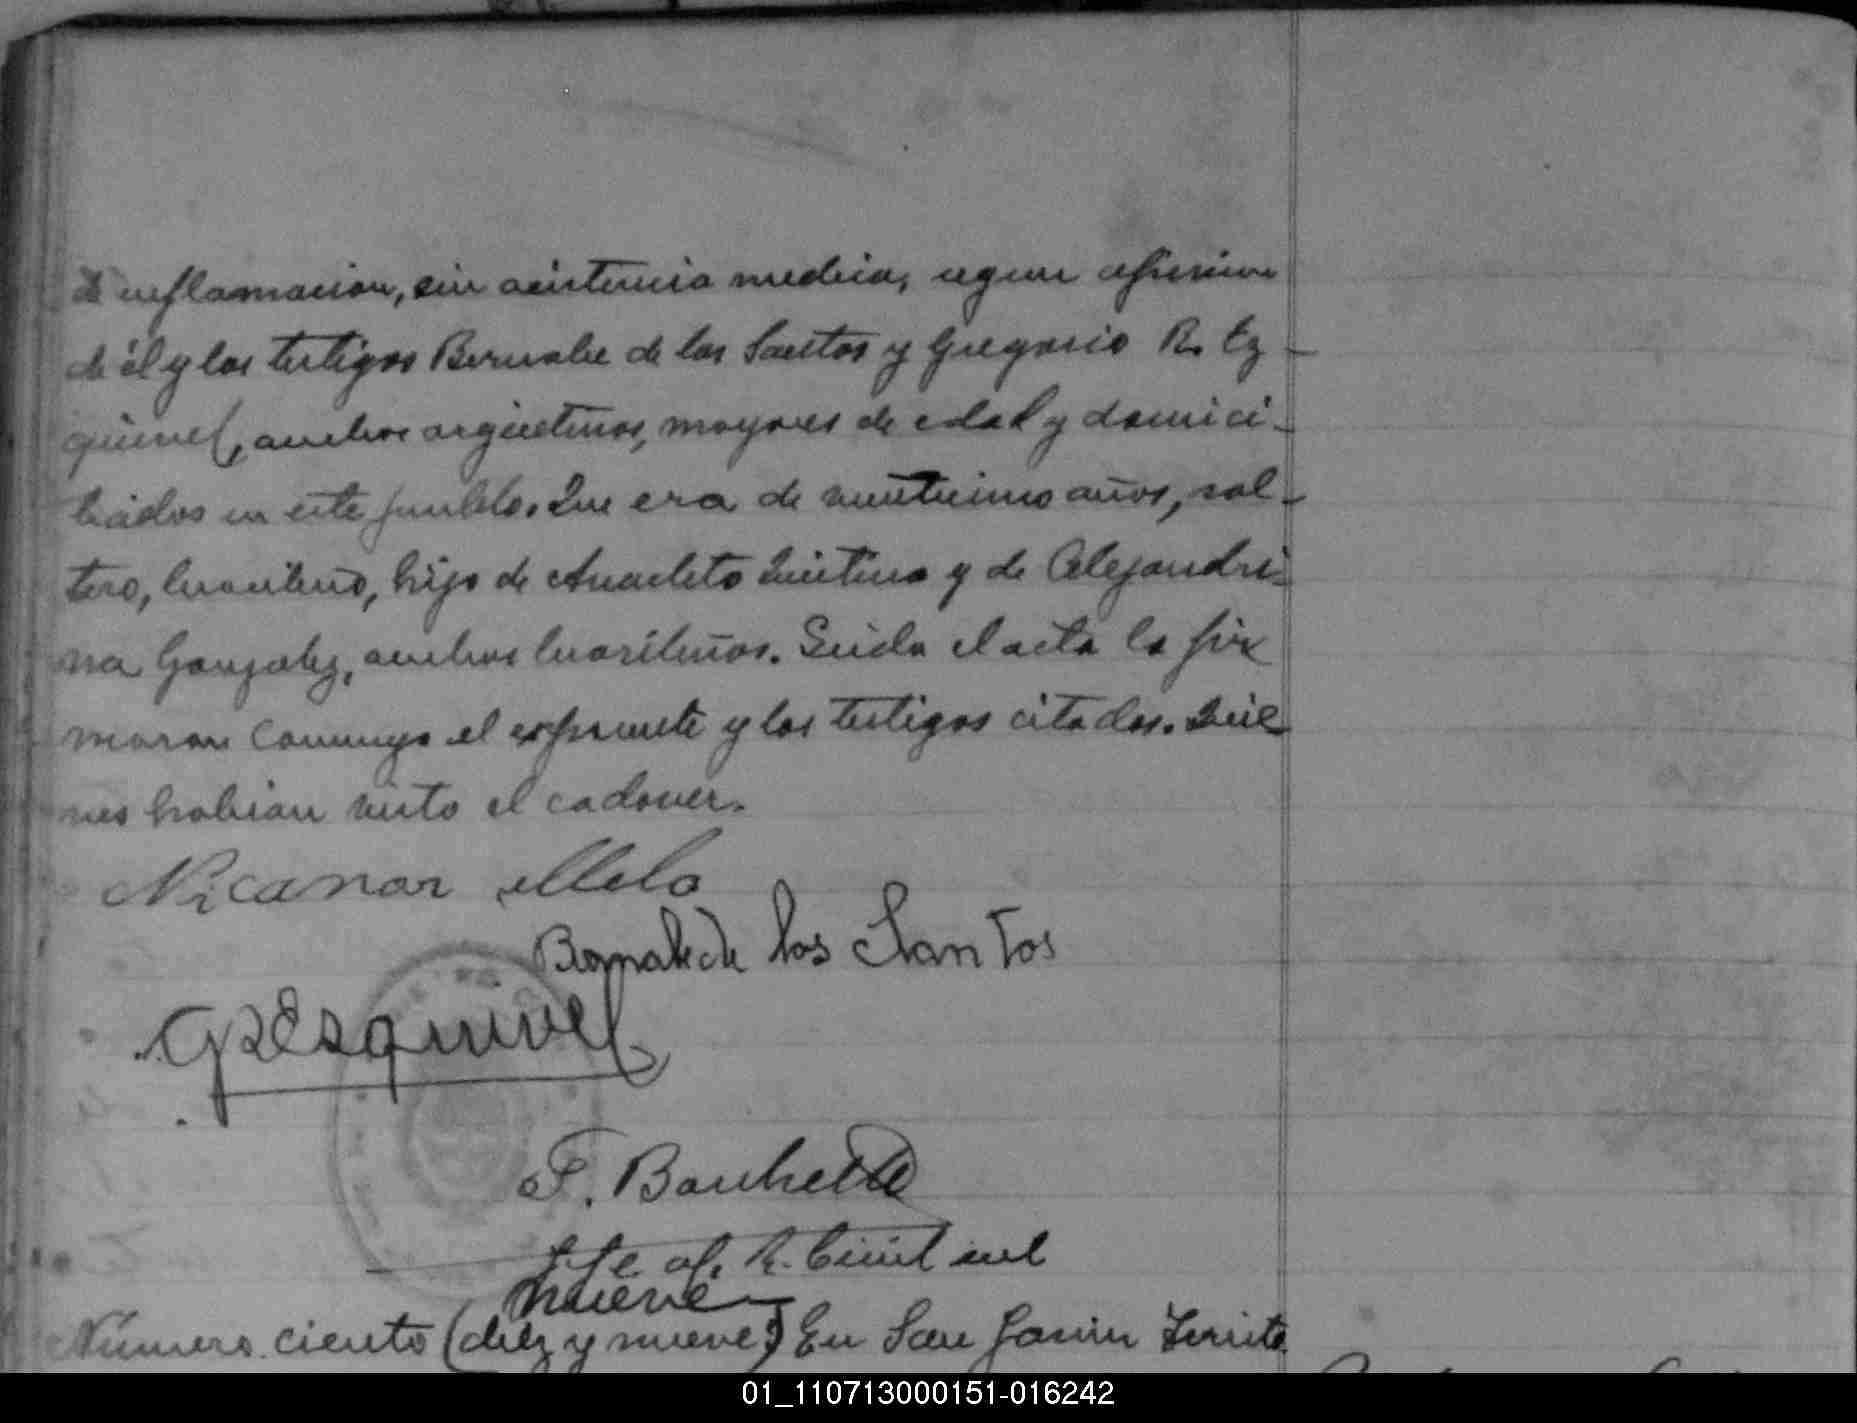 de inflamacion, sin asistencia medica, segun esposicion
de él y los testigos Bernabe de los Santos y Gregorio R. Ez-
quivel, ambos argentinos, mayores de edad y domici-
liados en este pueblo. Que era de años, sol-
tero, brasileño, hijo de Anacleto Quintino y de Alejandri-
na Gonzalez, ambos brasileños. Leida el acta la fir
maron conmigo el esponente y los testigos citados. Quie
nes habian visto el cadaver.
Nicanor Melo
Bernabe de los Santos
GREsquivel
F.
Jefe of. R. Civil
nueve
Número ciento (diez y nueve) En San Javier Territo
01_110713000151-016242